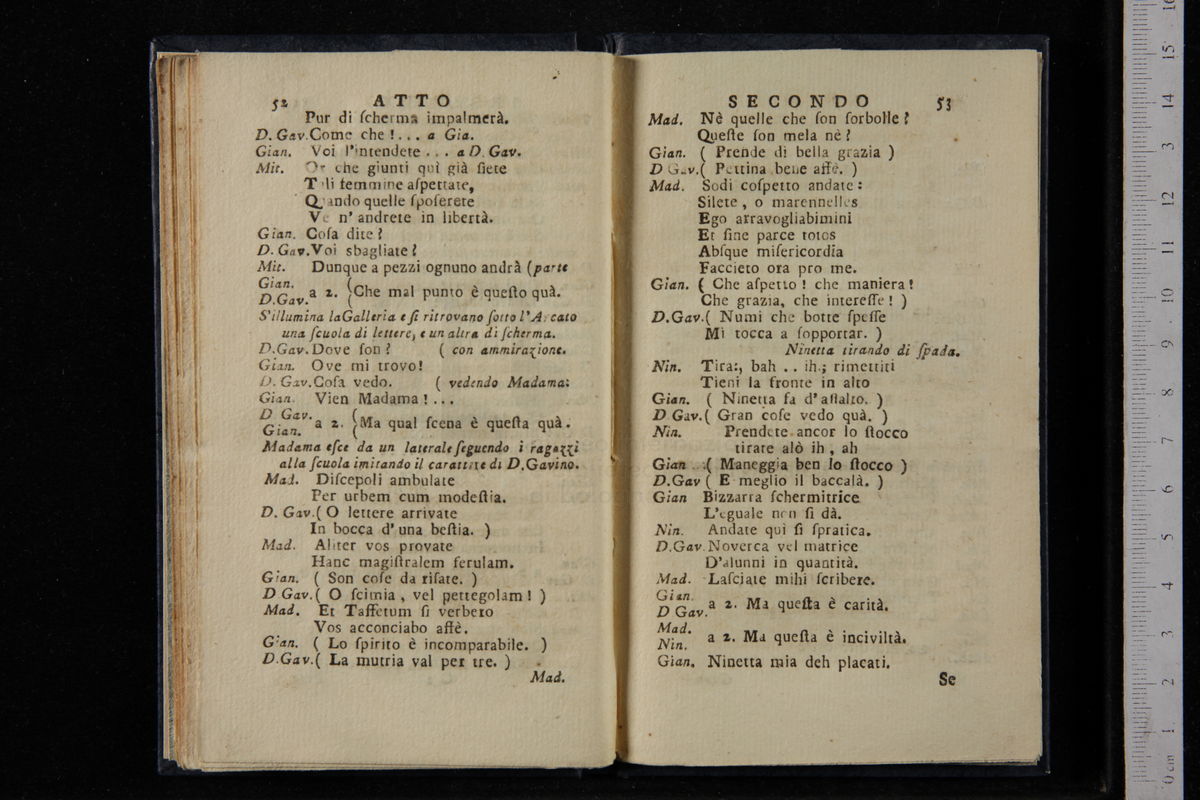 52 ATTO
Pur di ſcherma impalmerà.
D. Gav. Come che !... a Gia.
Gian. Voi l'intendete ... a D. Gav.
Mit. Or che giunti qui già ſiete
Tali femmine aſpettate,
Quando quelle ſpoſerete
Ve n' andrete in libertà.
Gian. Coſa dite ?
D. Gav. Voi sbagliate ?
Mit. Dunque a pezzi ognuno andrà (parte
Gian.
D.Gav. a 2. {Che mal punto è queſto quà.
S'illumina la Galleria e ſi ritrovano ſotto l'Arcato
una ſcuola di lettere, e un altra di ſcherma.
D.Gav. Dove ſon ? ( con ammirazione.
Gian. Ove mi trovo!
D. Gav. Coſa vedo. ( vedendo Madama:
Gian. Vien Madama ! ...
D Gav.
Gian. a 2. {Ma qual ſcena è queſta quà.
Madama eſce da un laterale ſeguendo i ragazzi
alla ſcuola imitando il carattere di D.Gavino.
Mad. Diſcepoli ambulate
Per urbem cum modeſtia.
D. Gav. ( O lettere arrivate
In bocca d' una beſtia. )
Mad. Aliter vos provate
Hanc magiſtralem ferulam.
Gian. ( Son coſe da riſate. )
D Gav. ( O ſcimia , vel pettegolam ! )
Mad. Et Taffetum ſi verbero
Vos acconciabo affè.
Gian. ( Lo ſpirito è incomparabile. )
D.Gav. ( La mutria val per tre. )
Mad.
SECONDO 53
Mad. Nè quelle che ſon ſorbolle ?
Queſte ſon mela nè ?
Gian. ( Prende di bella grazia )
D Gav. ( Pettina bene affè. )
Mad. Sodi coſpetto andate :
Silete , o marennelles
Ego arravogliabimini
Et ſine parce totos
Abſque miſericordia
Faccieto ora pro me.
Gian. ( Che aſpetto ! che maniera !
Che grazia, che intereſſe ! )
D.Gav. ( Numi che botte ſpeſſe
Mi tocca a ſopportar. )
Ninetta tirando di ſpada.
Nin. Tira:, bah .. ih.; rimettiti
Tieni la fronte in alto
Gian. ( Ninetta fa d' aſſalto. )
D Gav. ( Gran coſe vedo quà. )
Nin. Prendete ancor lo ſtocco
tirate alò ih , ah
Gian .:( Maneggia ben lo ſtocco )
D.Gav ( E meglio il baccalà. )
Gian Bizzarra ſchermitrice
L'eguale non ſi dà.
Nin. Andate qui ſi ſpratica.
D.Gav Noverca vel matrice
D'alunni in quantità.
Mad. Laſciate mihi ſcribere.
Gian.
D Gav. a 2. Ma queſta è carità.
Mad.
Nin. a 2. Ma queſta è inciviltà.
Gian. Ninetta mia deh placati.
Se
0 cm 1 2 3 4 5 6 7 8 9 10 11 12 13 14 15 16